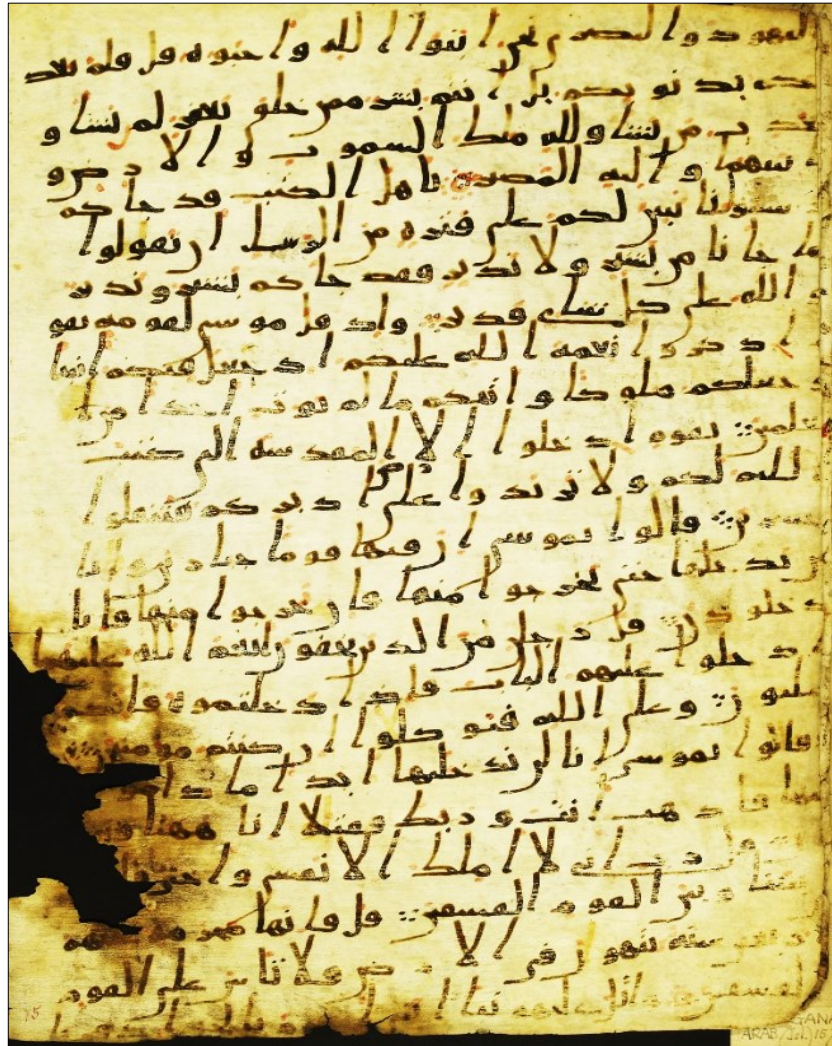 اليهود والنصرى نحن ابنوا الله واحبوه قل فلم يعذ
بكم بذنوبكم بل انتم بشر ممن خلق يغفر لمن يشا و
يعذب من يشا ولله ملك السموت والارض و
بينهما واليه المصير ياهل الكتب قد جاكم
رسولنا يبين لكم على فترة من الرسل ان تقولوا
ما جانا من بشير ولا نذير فقد جاكم بشير ونذير
والله على كل شاى قدير واذ قل موسى لقومه يقو
م اذكروا نعمة الله عليكم اذ جعل فيكم انبيا
وجعلكم ملوكا واتيكم ما لم يوت احدا من ا
لعلمين يقوم ادخلوا الارض المقدسة التى كتب
الله لكم ولا ترتدوا على ادبركم فتنقلبوا
خسرين قالوا يموسى ان فيها قوما جبارين وانا
لن ندخلها حتى يخرجوا منها فان يخرجوا منها فانا
دخلون قل رجلن من الذين يخفون انعم الله عليهما
ادخلوا عليهم الباب فاذا دخلتموه فانكم
غلبون وعلى الله فتوكلوا ان كنتم مومنين
قالوا يموسى انا لن ندخلها ابدا ما داموا
فيها فاذهب انت وربك فقتلا انا ههنا
قل رب انى لا املك الا نفسى واخى
بيننا وبين القوم الفسقين قل فانها محرمة عليهم
اربعين سنة يتيهون فى الارض فلا تاس على القوم
الفسقين واتل عليهم نبا
15
ARAB. III. 15